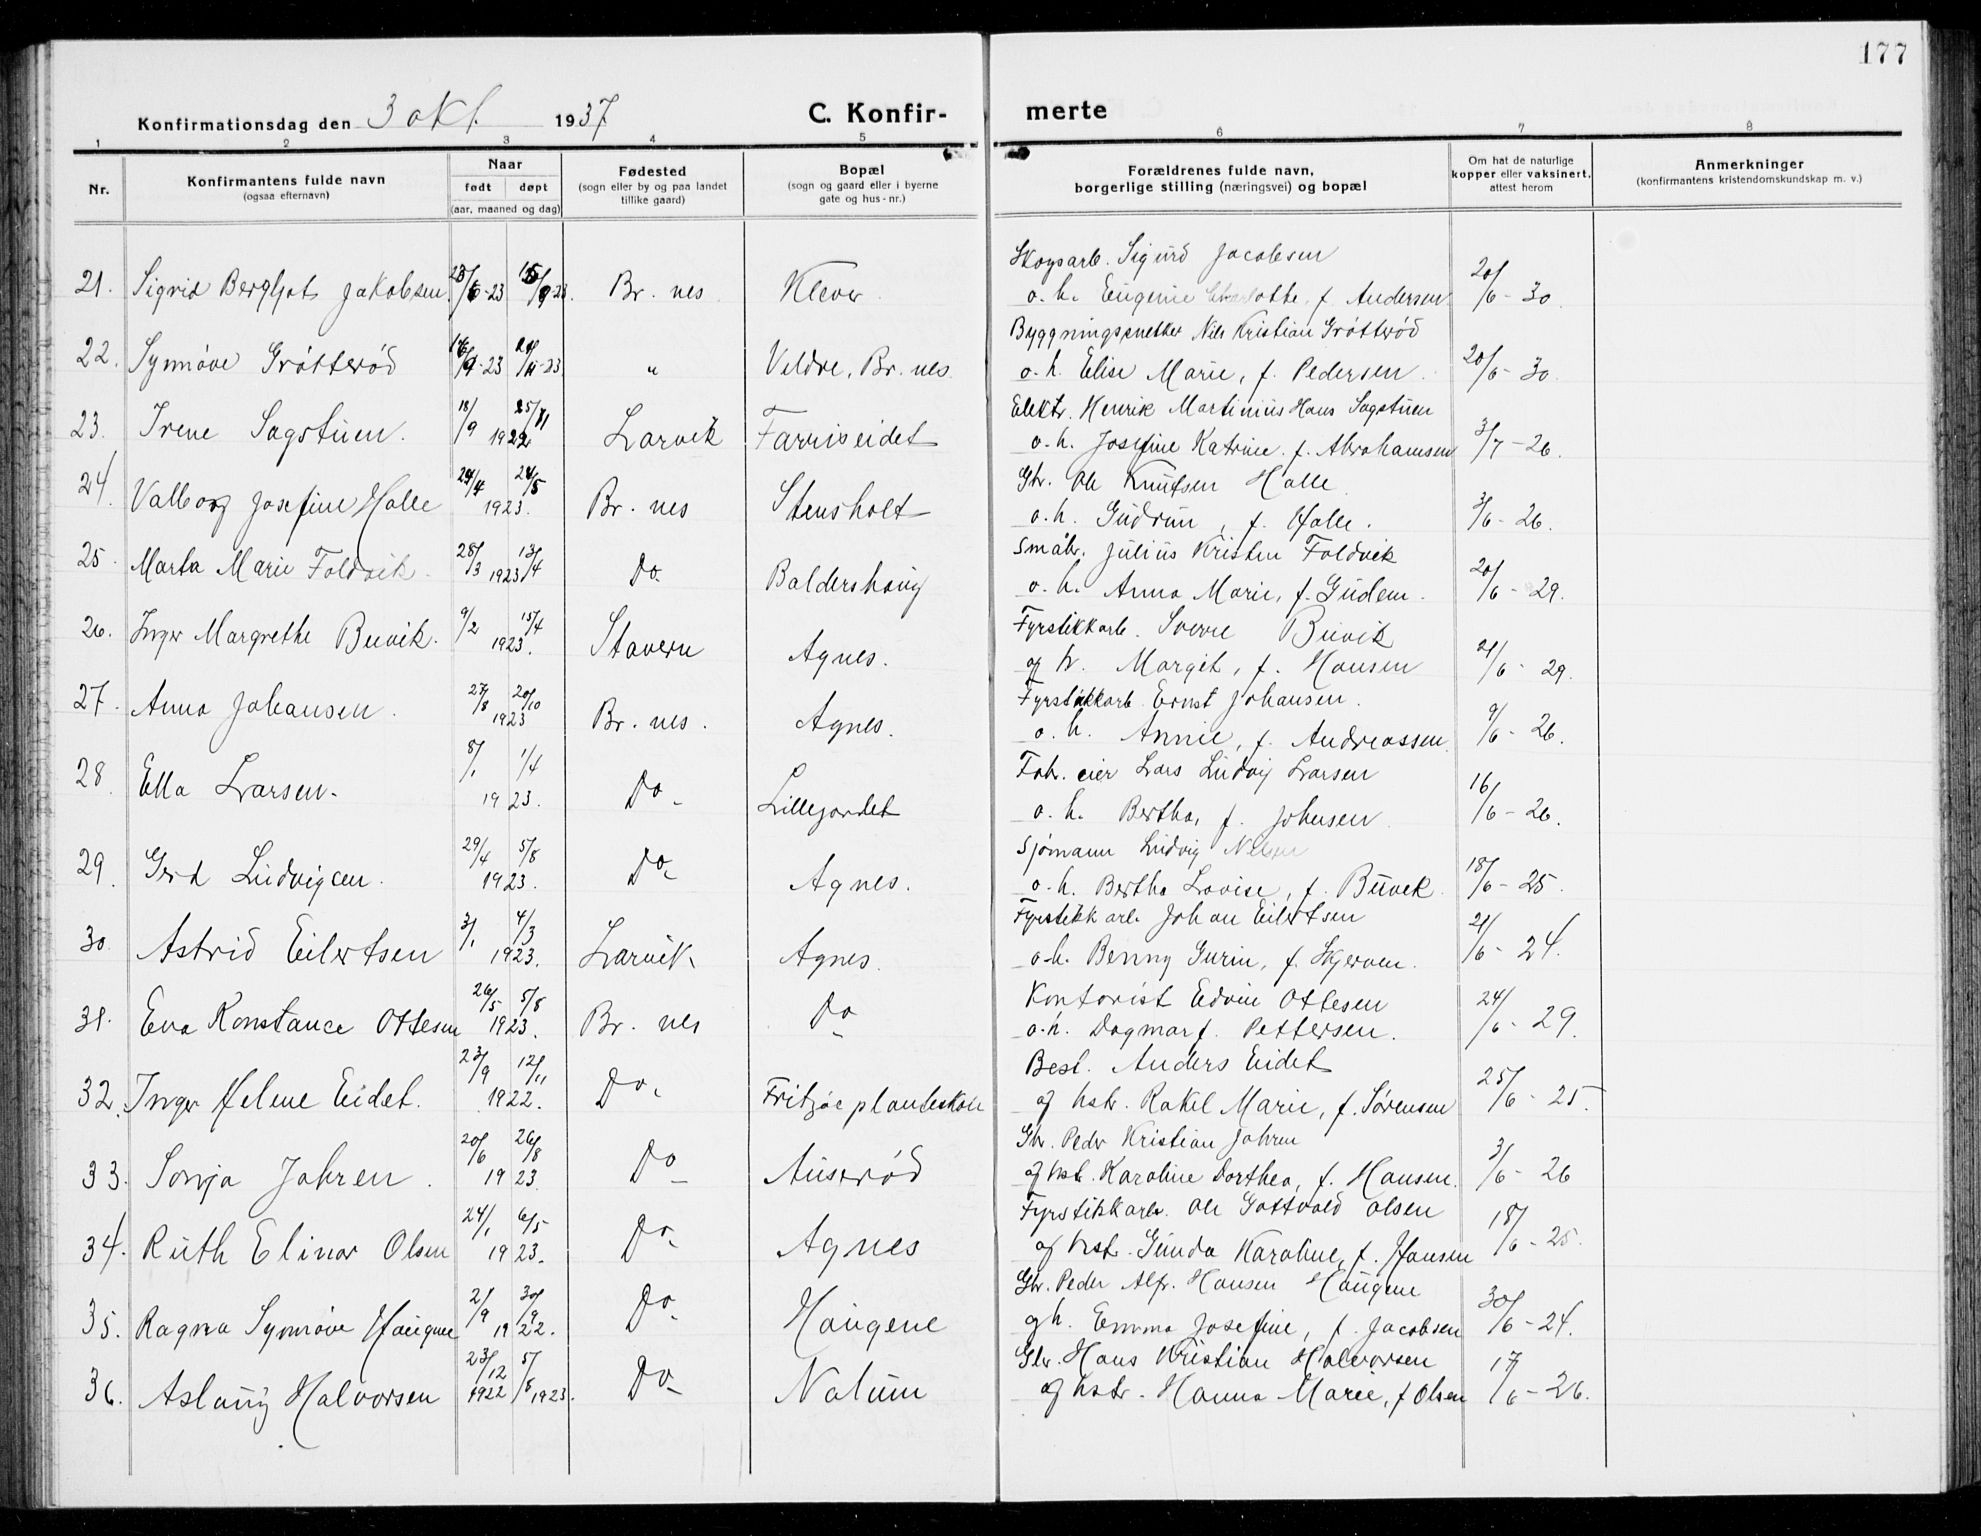 177
Konfirmationsdag den 3 okt. 1937
C. Konfirmerte
1 2 3 4 5 6 7 8
Nr.
Konfirmantens fulde navn
(ogsaa efternavn)
Naar
født døpt
(aar, maaned og dag)
Fødested
(sogn eller by og paa landet
tillike gaard)
Bopæl
(sogn og gaard eller i byerne
gate og hus-nr.)
Forældrenes fulde navn,
borgerlige stilling (næringsvei) og bopæl
Om hat de naturlige
kopper eller vaksinert,
attest herom
Anmerkninger
(konfirmantens kristendomskundskap m. v.)
Skogsarb. Sigurd Jacobsen
21. Sigrid Bergljot Jakobsen 23/6-23 15/9-23. Br. nes Klever. o. h. Eugenie Charlotte, f. Andersen 20/6-30.
Byggningssnekker Nils Kristian Grøtterød
22. Synnøve Grøtterød 16/9-23 24/11-23 " Veldre, Br. nes o. h. Elise Marie, f. Pedersen. 20/6-30.
Elektr. Henrik Martinius Hans Sagstuen
23. Irene Sagstuen. 18/9 25/11 1922 Larvik Farriseidet o. h. Josefine Katrine. f. Abrahamsen 3/7-26.
Gbr. Ole Knutsen Halle
24. Valborg Josefine Halle 24/4 24/5 1923. Br. nes Stensholt o. h. Gudrun, f. Halle. 3/6-26.
Småbr. Julius Kristen Foldvik
25. Marta Marie Foldvik. 28/3 13/4 1923 Do. Baldershaug o. h. Anna Marie, f. Gudem. 20/6-29.
Fyrstikkarb. Sverre Buvik
26. Inger Margrethe Buvik. 9/2 15/4 1923. Stavern Agnes. og h. Margit, f. Hansen 21/6-29.
Fyrstikkarb. Ernst Johansen.
27. Anna Johansen. 27/8 20/10 1923 Br. nes. Agnes. o. h. Annie, f. Andreassen. 9/6-26.
Fab. eier Lars Ludvig Larsen
28. Ella Larsen. 8/1 1/4 1923. Do. Lillejordet o. h. Bertha, f. Johnsen. 16/6-26.
Sjømann Ludvig Nelsen
29. Gerd Ludvigsen. 29/4 5/8 1923. Do. Agnes. o. h. Bertha Lovise, f. Buvik. 18/6-25.
Fyrstikkarb. Johan Eilertsen
30. Astrid Eilertsen 3/1 4/3 1923. Larvik. Agnes. o. h. Benny Gurin, f. Skjerven. 21/6-24.
Kontorist Edvin Ottesen
31. Eva Konstance Ottesen 26/5 5/8 1923. Br. nes Do o. h. Dagmar f. Pettersen. 24/6-29.
Best. Anders Eidet
32. Inger Helene Eidet. 23/9 12/11 1922. Do. Fritzøe planteskole og hstr. Rakel Marie, f. Sørensen 25/6-25.
Gbr. Peder Kristian Jahren
33. Sonja Jahren. 20/6 26/8 1923 Do Auserød og hstr. Karoline Dorthea, f. Hansen. 3/6-26
Fyrstikkarb. Ole Gottvald Olsen
34. Ruth Elinor Olsen 24/1 6/5 1923. Do. Agnes og hstr. Gunda Karoline, f. Hansen 18/6-25.
Gbr. Peder Alfr. Hansen Haugene
35. Ragna Synnøve Haugene 2/9 30/9 1922. Do. Haugene og h. Emma Josefine, f. Jacobsen 30/6-24.
Gbr. Hans Kristian Halvorsen
36. Aslaug Halvorsen 23/12 1922 5/8 1923. Do. Nalum og hstr. Hanna Marie, f Olsen 17/6-26.